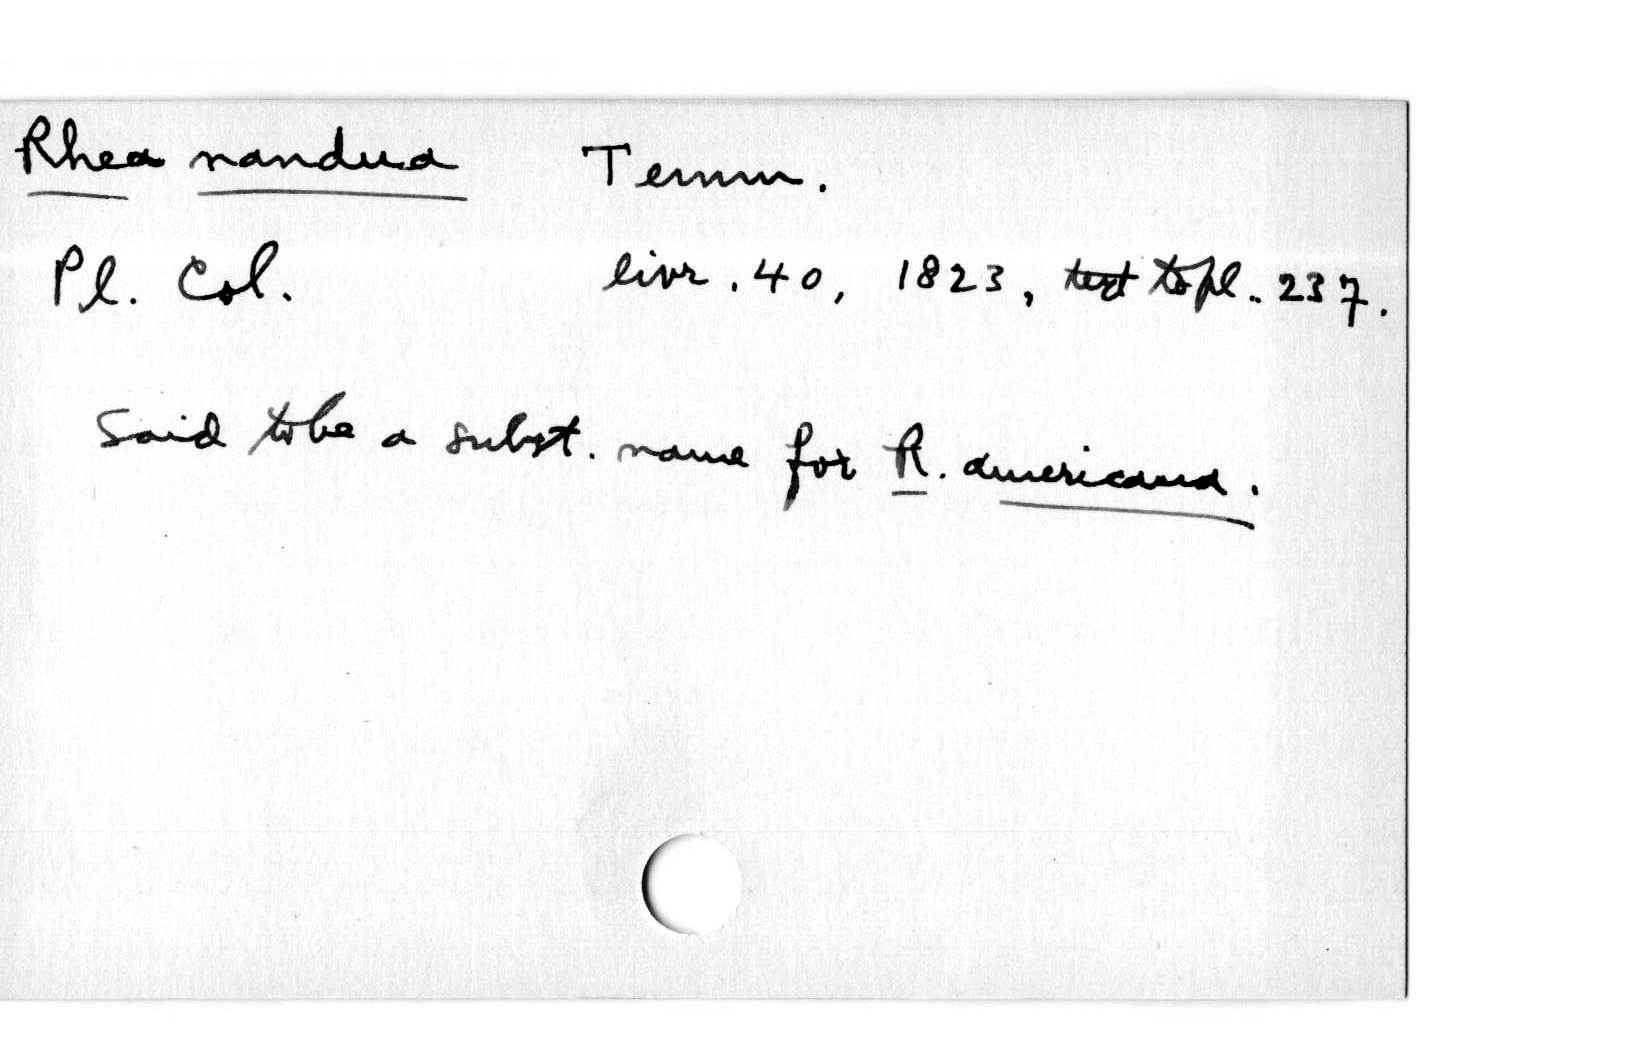 Rhea nandua Temm.
Pl. Col. livr. 40, 1823, text to pl.. 237.
Said to be a subst. name for R. americana.